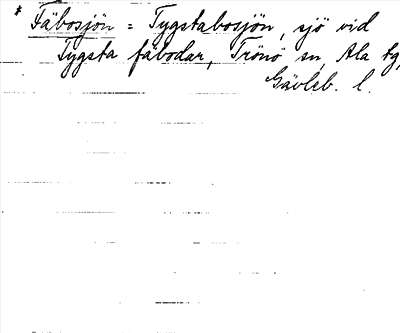 * Fäbosjön = Tygstabosjön, sjö vid
Tygsta fäbodar, Trönö sn, Ala tg,
Gävleb. l.